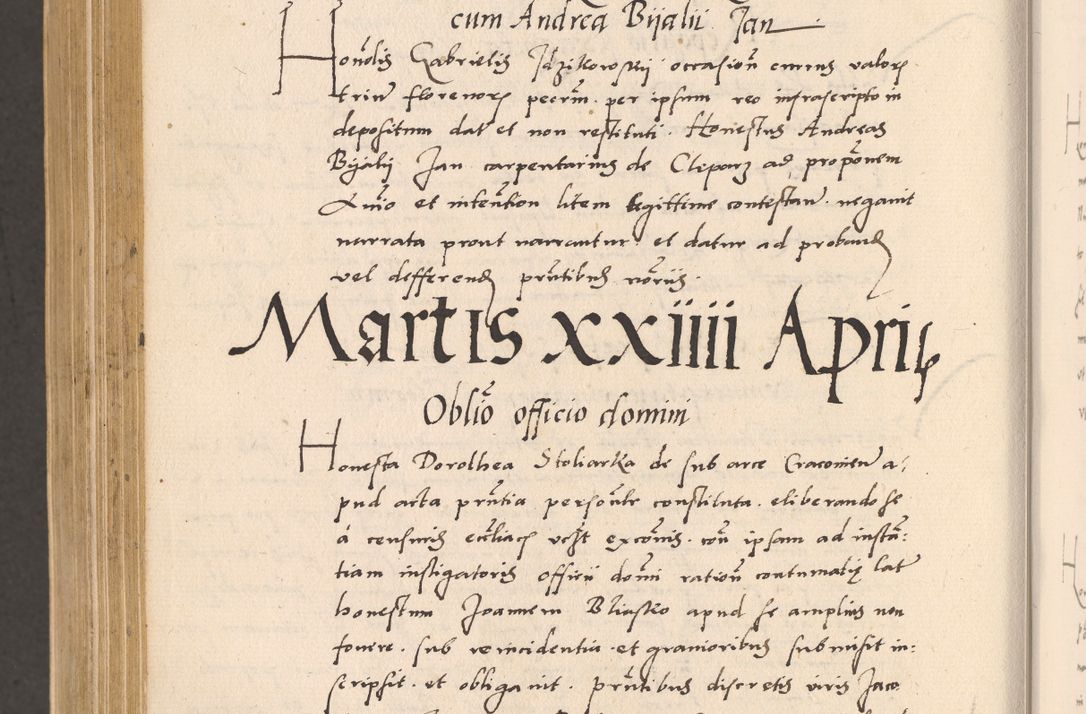 cum Andrea Bijalii Jan
Honōlis Gabrielis Jdzikowskij occasiōn
triū florenor pecūn. per ipsum reo infrascripto in
depositum dat et non restituti. Honestus Andreas
Bijalij Jan carpentarius de Cleparz ad propōnem
et intention litem legittime contestan. negavit
narrata prout narrantur. et datur ad proband
vel defferend prntibus nōriis.
Martis xxiiii Aprilis
Oblīo officio domini
Honesta Dorothea Stoliarka de sub arce Cracovien a:
pud acta prntia persōnlr constituta. eliberando se
á censuris eccliacz excōnis. con ipsam ad instā:
tiam instigatoris officii domni ratiōn contumatię lat
honestum Joannem Bliasko apud se amplius non
fovere. sub reincidentia et gravioribus submisit in:
scripsit. et obligavit. prntibus discretis viris Jaco